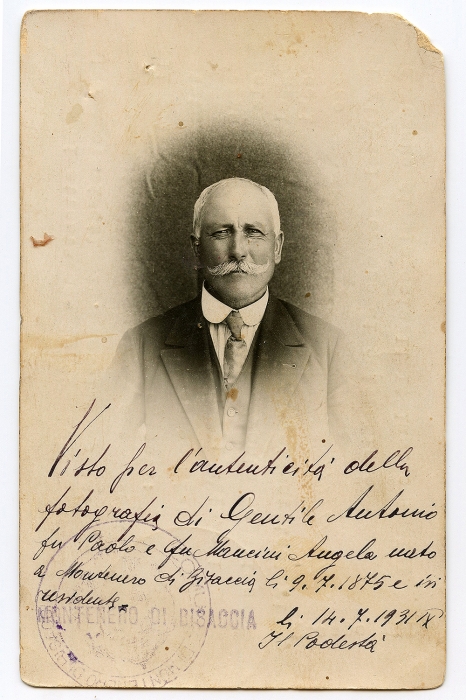 Visto per l'autenticità della
fotografia di Gentile Antonio
fu Paolo e fu Mancini Angela nato
a Montenero di Bisaccia li 9.7.1875 e ivi
residente
MONTENERO DI BISACCIA
li 14.7.1931 IX
Il Podestà